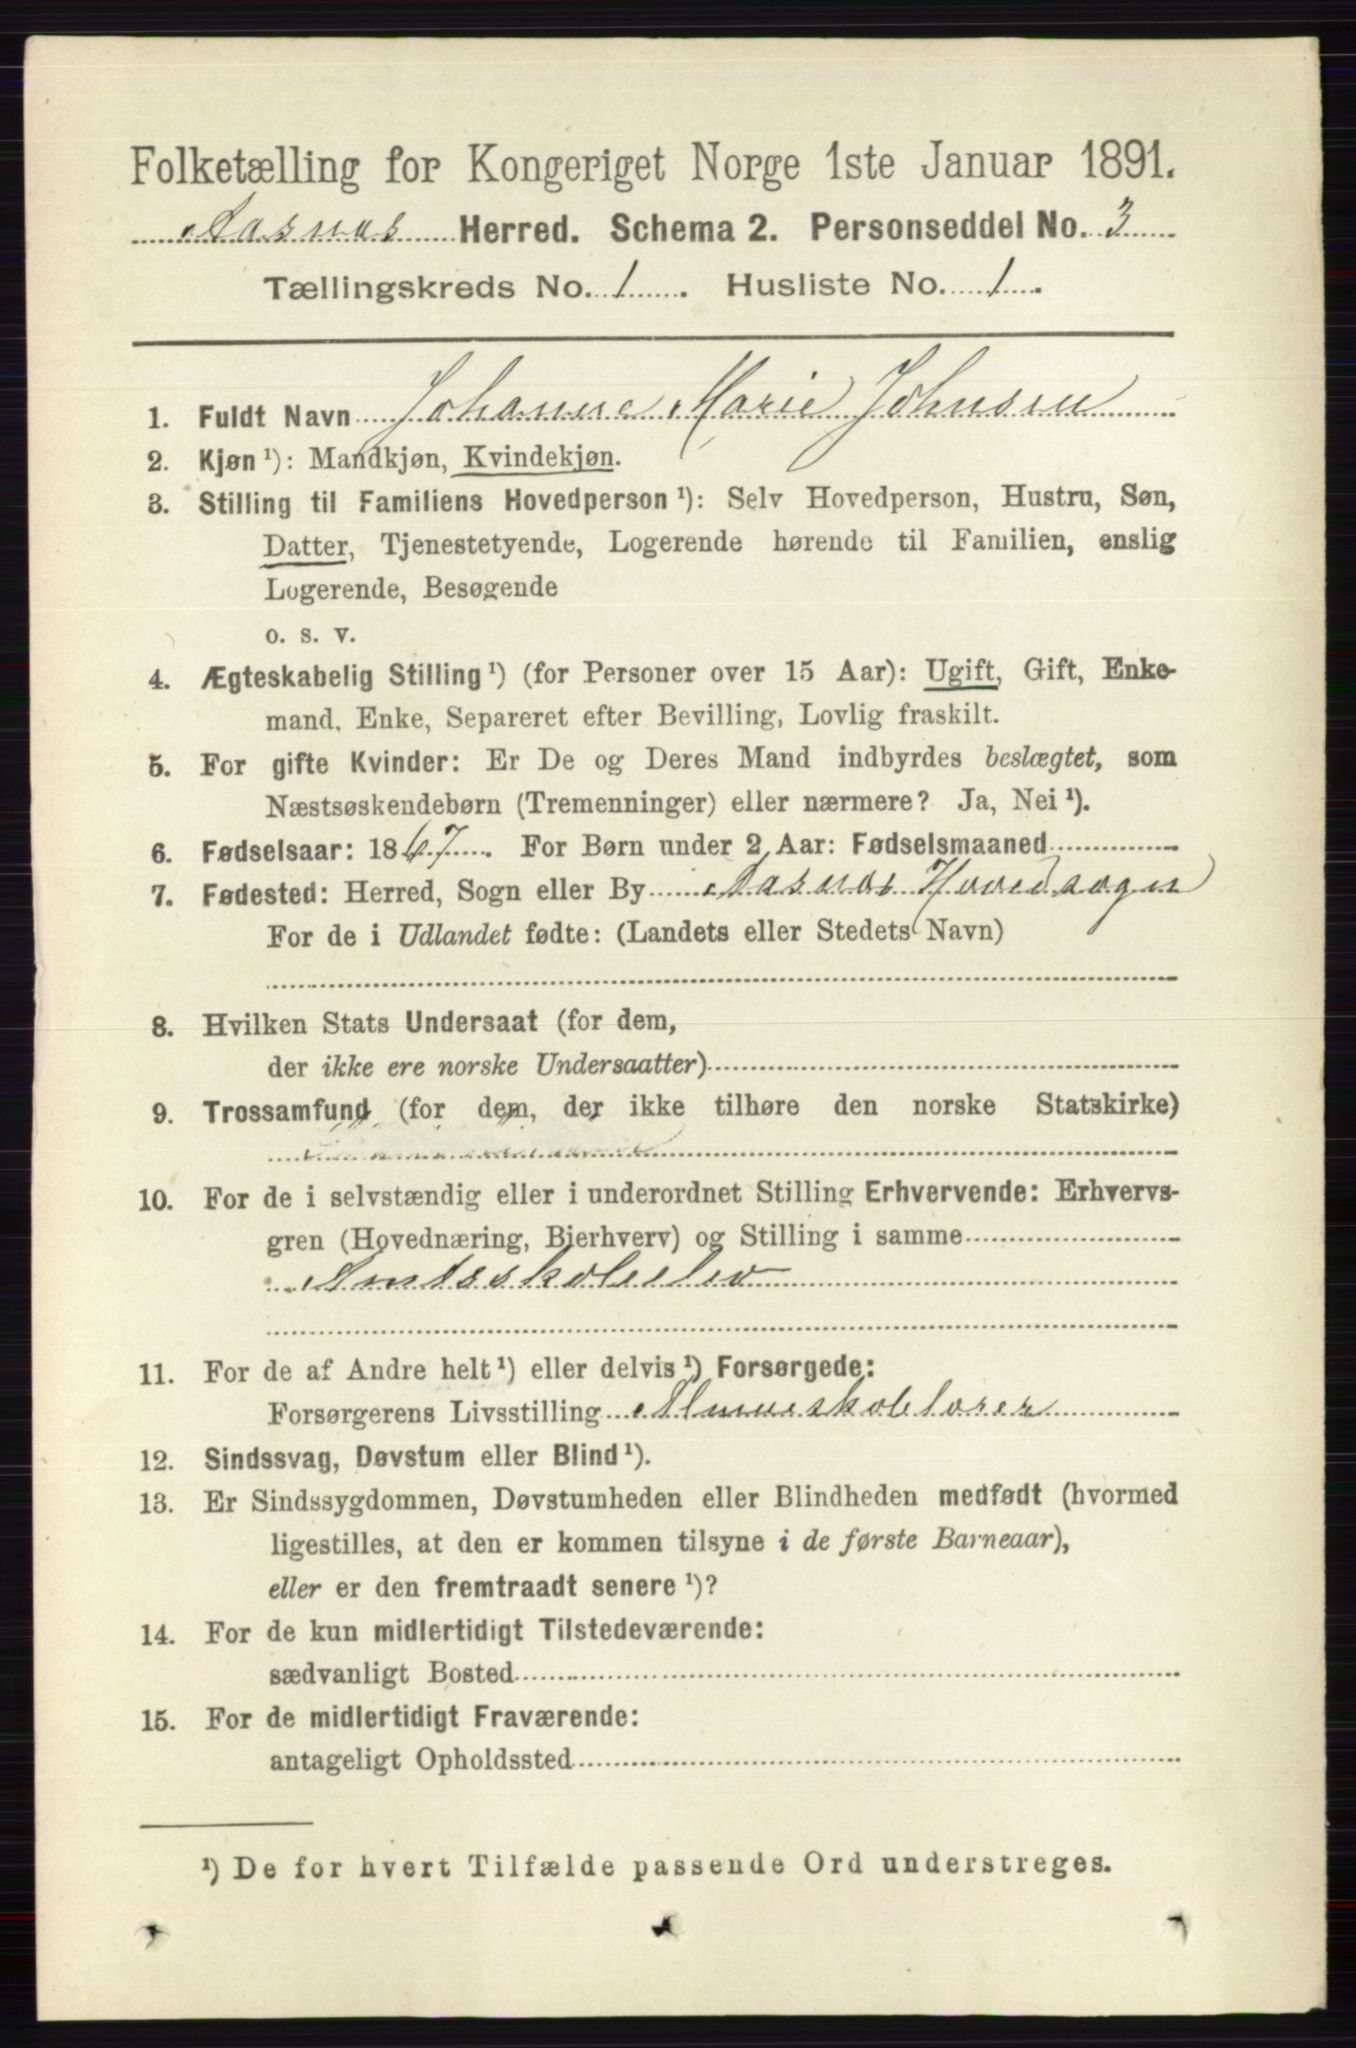 Folketælling for Kongeriget Norge 1ste Januar 1891.
Aasnæs Herred. Schema 2. Personseddel No. 3
Tællingskreds No. 1. Husliste No. 1.
1. Fuldt Navn Johanne Marie Johnsen
2. Kjøn ¹): Mandkjøn, Kvindekjøn.
3. Stilling til Familiens Hovedperson ¹): Selv Hovedperson, Hustru, Søn,
Datter, Tjenestetyende, Logerende hørende til Familien, enslig
Logerende, Besøgende
o. s. v.
4. Ægteskabelig Stilling ¹) (for Personer over 15 Aar): Ugift, Gift, Enke-
mand, Enke, Separeret efter Bevilling, Lovlig fraskilt.
5. For gifte Kvinder: Er De og Deres Mand indbyrdes beslægtet, som
Næstsøskendebørn (Tremenninger) eller nærmere? Ja, Nei ¹).
6. Fødselsaar: 1867. For Børn under 2 Aar: Fødselsmaaned
7. Fødested: Herred, Sogn eller By Aasnæs Hovedsogn
For de i Udlandet fødte: (Landets eller Stedets Navn)
8. Hvilken Stats Undersaat (for dem,
der ikke ere norske Undersaatter)
9. Trossamfund (for dem, der ikke tilhøre den norske Statskirke)
10. For de i selvstændig eller i underordnet Stilling Erhvervende: Erhvervs-
gren (Hovednæring, Bierhverv) og Stilling i samme
Amtsskoleelev
11. For de af Andre helt ¹) eller delvis ¹) Forsørgede:
Forsørgerens Livsstilling Almueskolelærer
12. Sindssvag, Døvstum eller Blind ¹).
13. Er Sindssygdommen, Døvstumheden eller Blindheden medfødt (hvormed
ligestilles, at den er kommen tilsyne i de første Barneaar),
eller er den fremtraadt senere ¹)?
14. For de kun midlertidigt Tilstedeværende:
sædvanligt Bosted
15. For de midlertidigt Fraværende:
antageligt Opholdssted
¹) De for hvert Tilfælde passende Ord understreges.